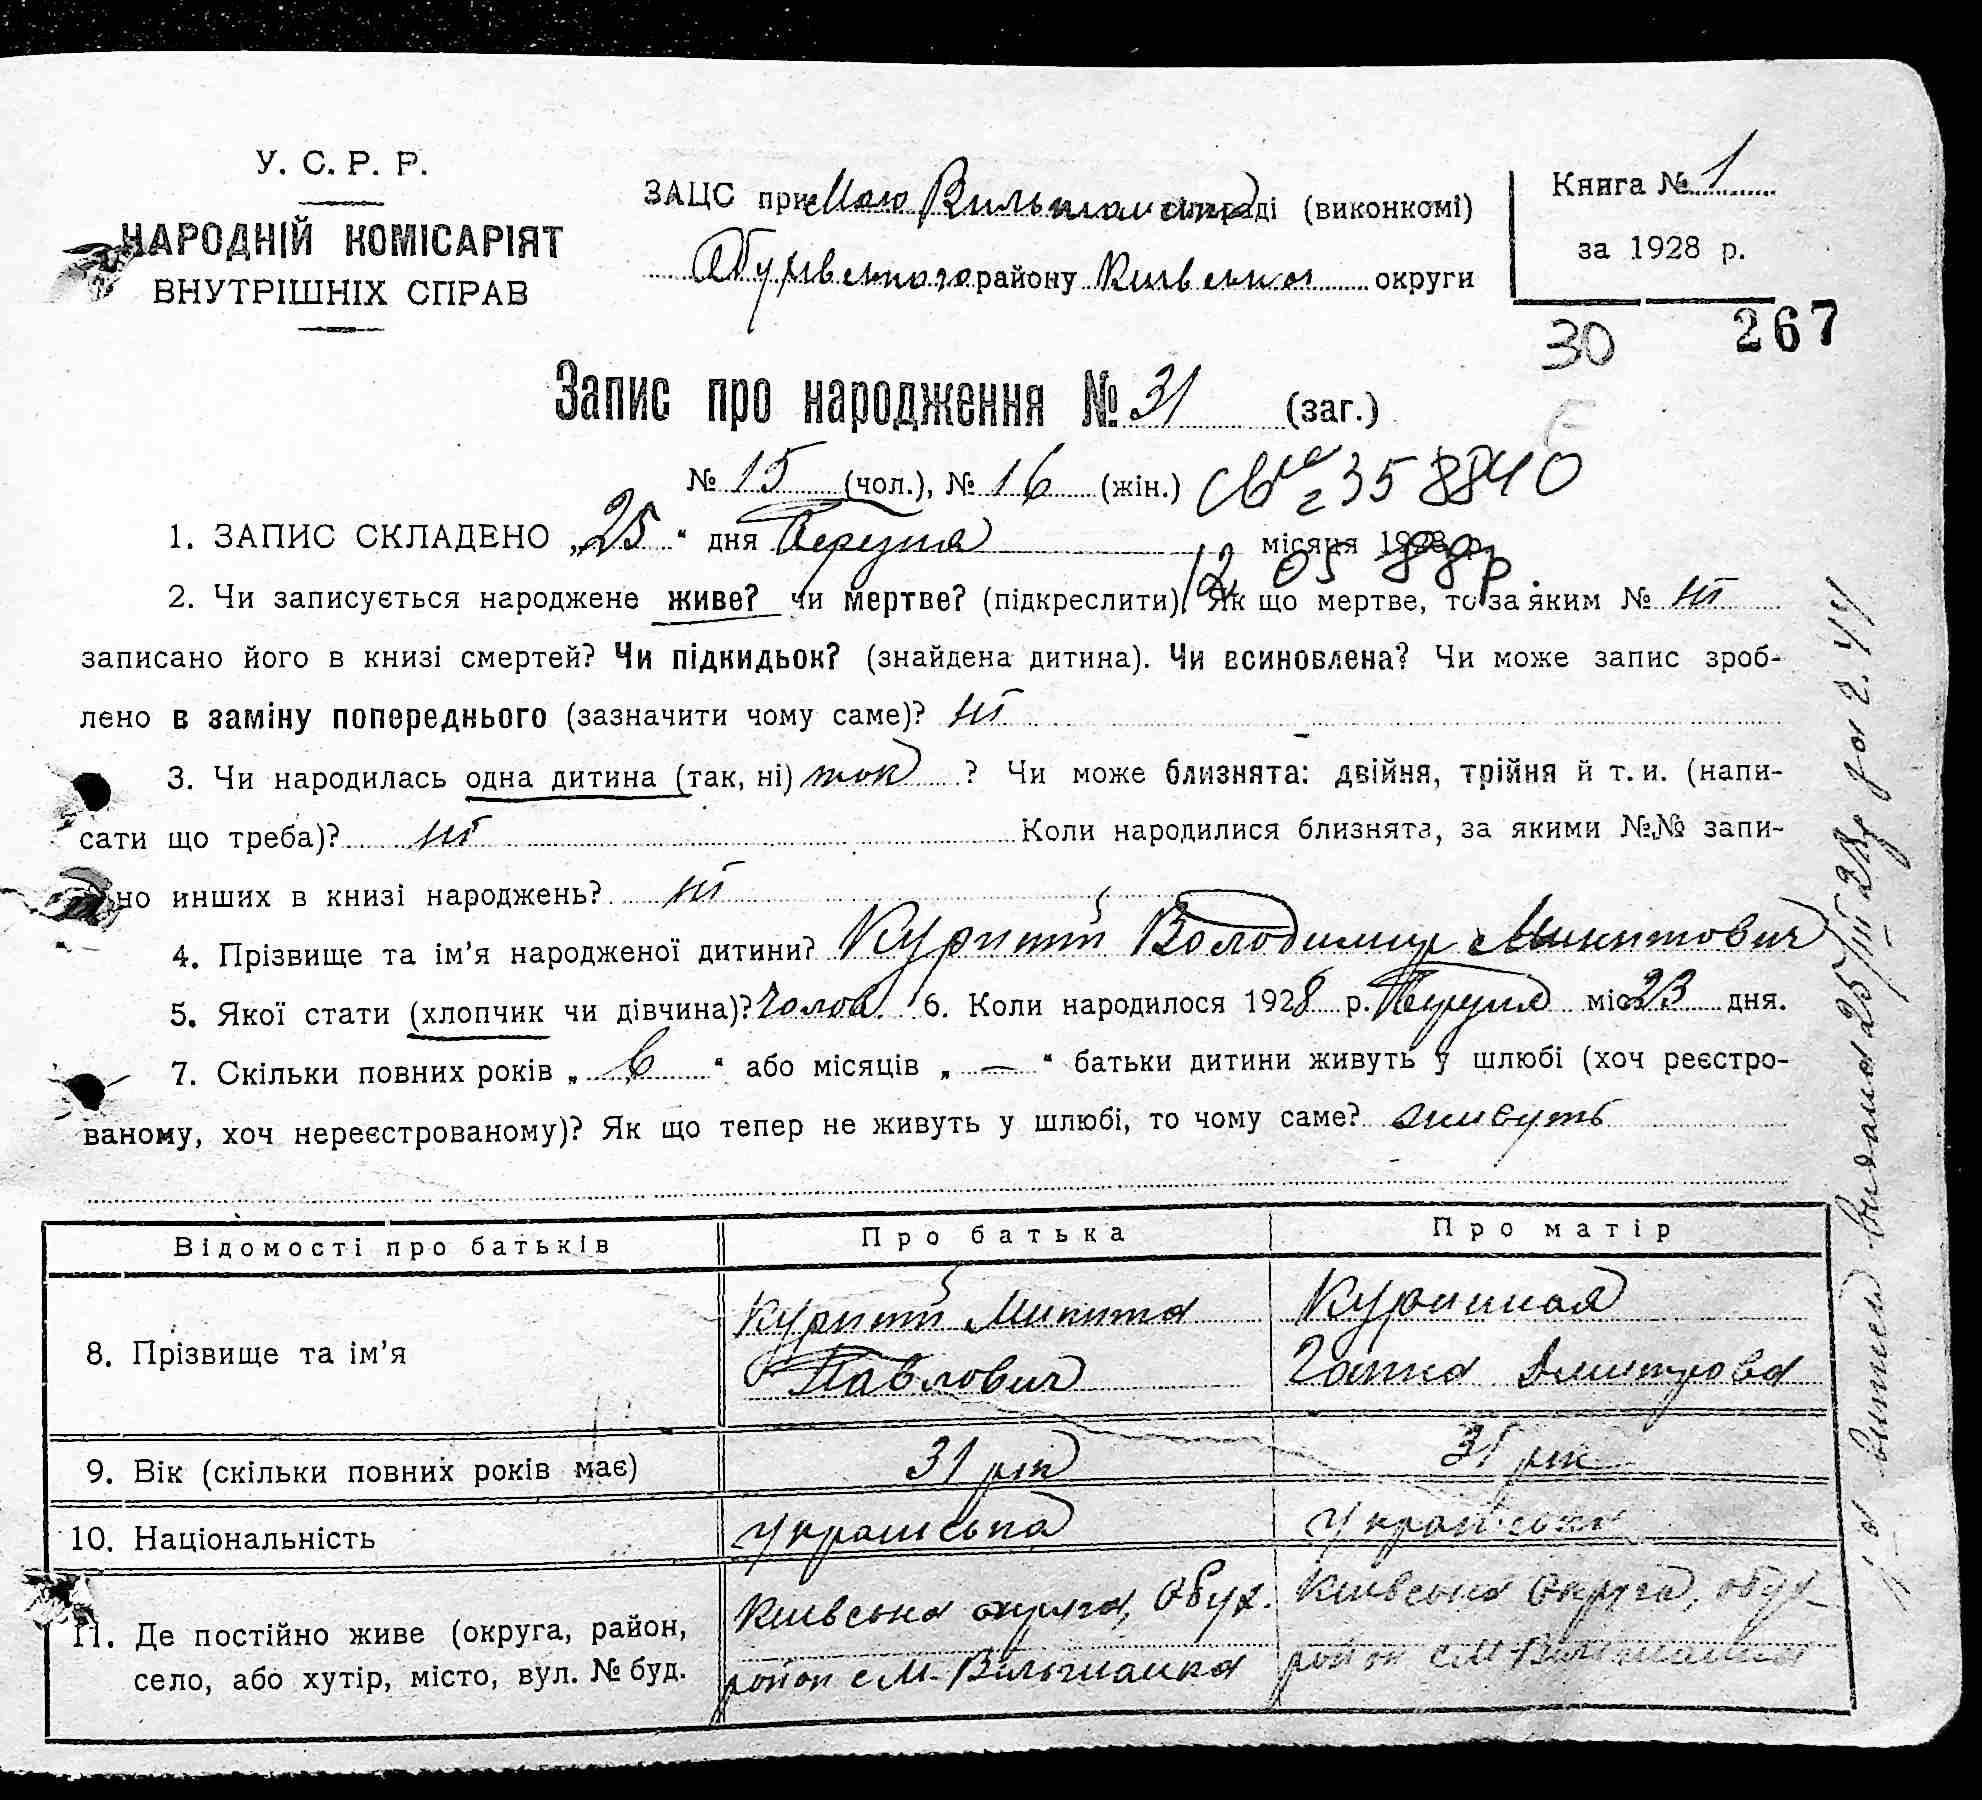 У. С. Р. Р.
НАРОДНІЙ КОМІСАРІЯТ
ВНУТРІШНІХ СПРАВ
ЗАЦС при раді (виконкомі)
району Київської округи
Книга № 1
за 1928 р.
30 267
Запис про народження № 31 (заг.)
№ 15 (чол.), № 16 (жін.)
358840
1. ЗАПИС СКЛАДЕНО „25“ дня Березня місяця 1928 р.
12 05 88р.
2. Чи записується народжене живе? чи мертве? (підкреслити). Як що мертве, то за яким № ні
записано його в книзі смертей? Чи підкидьок? (знайдена дитина). Чи всиновлена? Чи може запис зроб-
лено в заміну попереднього (зазначити чому саме)? ні
3. Чи народилась одна дитина (так, ні) так ? Чи може близнята: двійня, трійня й т. и. (напи-
сати що треба)? ні Коли народилися близнята, за якими №№ запи-
но инших в книзі народжень? ні
4. Прізвище та ім’я народженої дитини? Володимир Микитович
5. Якої стати (хлопчик чи дівчина)? чолов. 6. Коли народилося 1928 р. Березня міс 23 дня.
7. Скільки повних років „6“ або місяців „—“ батьки дитини живуть у шлюбі (хоч реєстро-
ваному, хоч нереєстрованому)? Як що тепер не живуть у шлюбі, то чому саме? живуть
Відомості про батьків Про батька Про матір
8. Прізвище та ім’я
Микита
Павлович
Дмитрова
9. Вік (скільки повних років має) 31 рік 31 рік
10. Національність українська українська
11. Де постійно живе (округа, район,
село, або хутір, місто, вул. № буд.
Київська округа, Обух.
район с М-Вільшанка
Київська округа, обух
район с М-Вільшанка